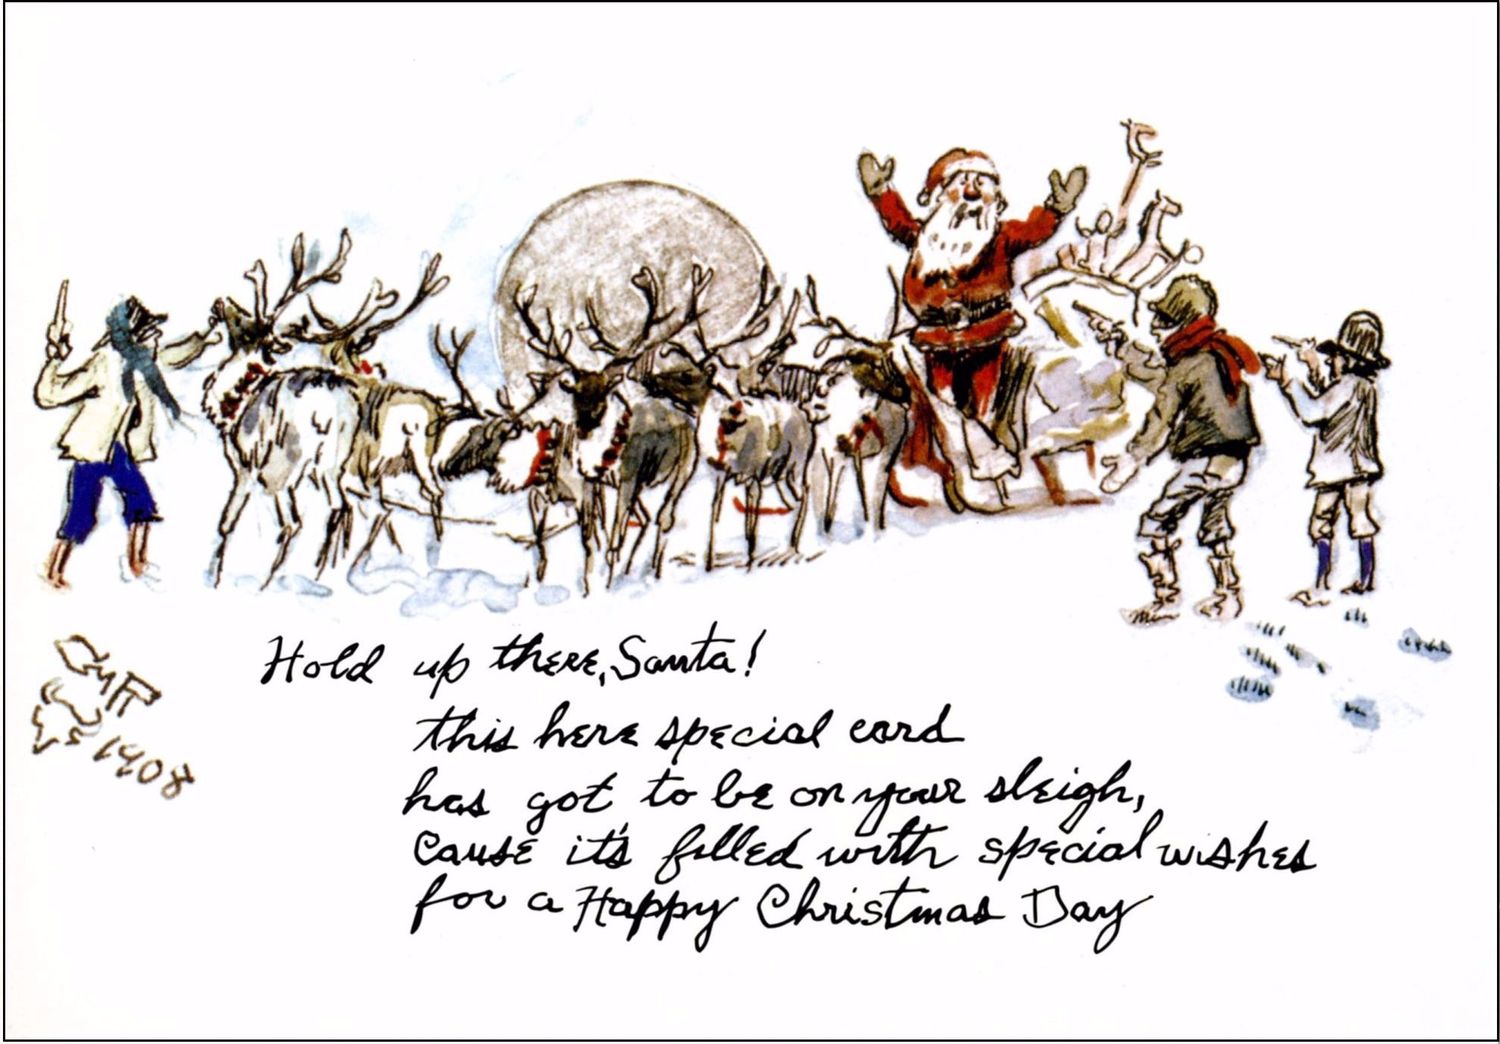 Hold up there, Santa!
this here special card
has got to be on your sleigh,
cause it's filled with special wishes
for a Happy Christmas Day
CMR
1908